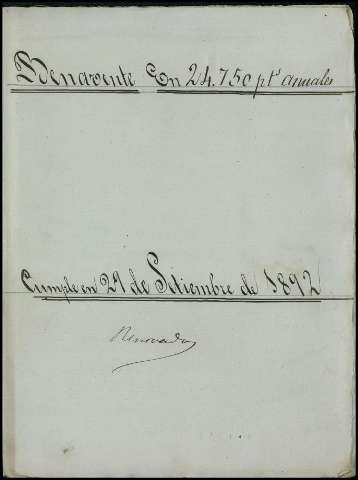 Benavente En 24.750 pts anuales
Cumple en 29 de Setiembre de 1892
Renovado